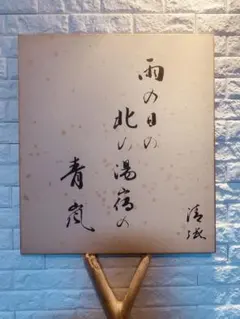 雨の日の
北の湯宿の
青嵐